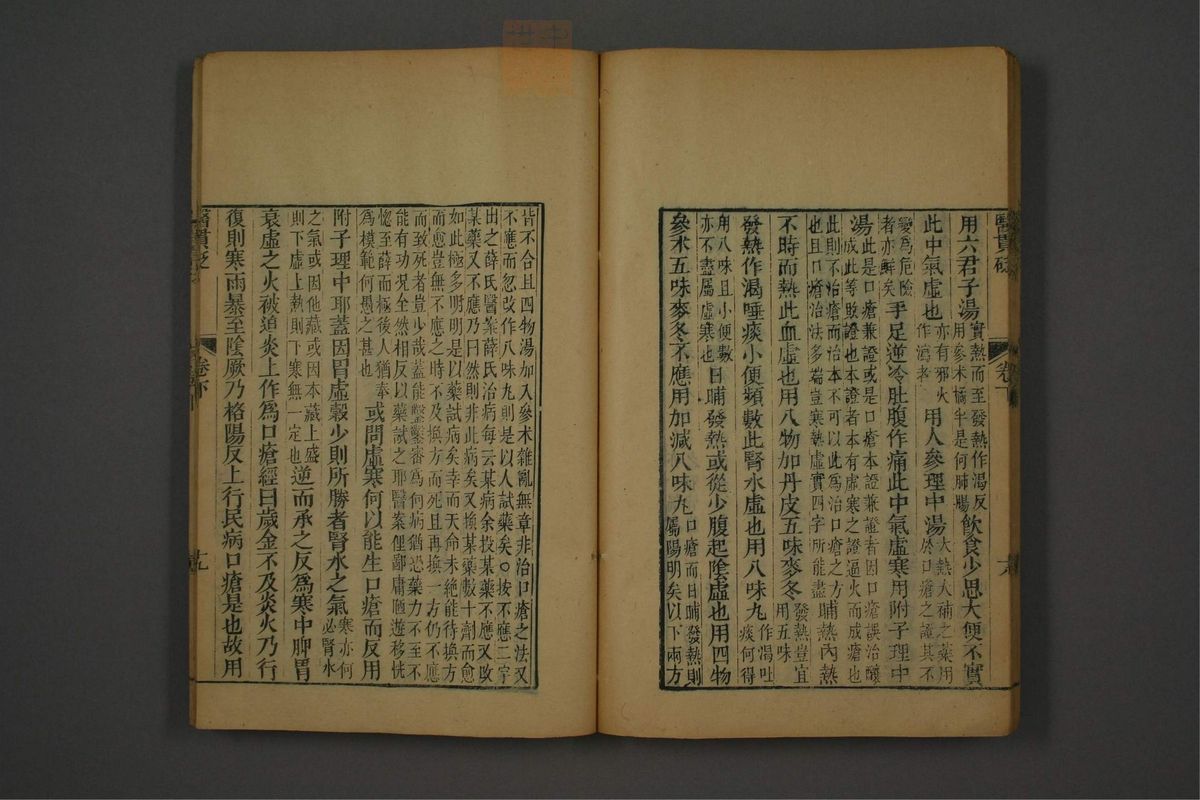 醫貫砭
卷下
用六君子湯實熱而至發熱作渴反用參术橘半是何肺腸飲食少思大便不實
此中氣虛也亦有邪火作瀉者用人參理中湯大熱大補之藥用於口瘡之證其不
變為危險者亦鮮矣手足逆冷肚腹作痛此中氣虛寒用附子理中
湯此是口瘡兼證或是口瘡本證兼證者因口瘡誤治釀成此等敗證也本證者本有虛寒之證逼火而成瘡也
此則不治瘡而治本不可以此為治口瘡之方也且口瘡治法多端豈寒熱虛實四字所能盡晡熱內熱
不時而熱此血虛也用八物加丹皮五味麥冬發熱豈宜用五味
發熱作渴唾痰小便頻數此腎水虛也用八味丸作渴吐痰何得
用八味且小便數亦不盡屬虛寒也日晡發熱或從少腹起陰虛也用四物
參术五味麥冬不應用加減八味丸口瘡而日晡發熱則屬陽明矣以下兩方
皆不合且四物湯加入參术雜亂無章非治口瘡之法又不應而忽改作八味丸則是以人試藥矣○按不應二字
出之薛氏醫案薛氏治病每云某病余投某藥不應又改某藥又不應乃曰然則非此病矣又換某藥數十劑而愈
如此極多明明是以藥試病矣幸而天命未絕能待換方而愈豈無不應之時不及換方而死且再換一方仍不應
而致死者豈少哉蓋能鑿鑿審為何病猶恐藥力不至不能有功況全然相反以藥試之耶醫案俚鄙庸陋遊移恍
惚至薛而極後人猶奉為模範何愚之甚也或問虛寒何以能生口瘡而反用
附子理中耶蓋因胃虛穀少則所勝者腎水之氣寒亦何必腎水
之氣或因他藏或因本藏上盛則下虛上熱則下寒無一定也逆而承之反為寒中脾胃
衰虛之火被迫炎上作為口瘡經曰歲金不及炎火乃行
復則寒雨暴至陰厥乃格陽反上行民病口瘡是也故用
醫貫砭
卷下
十九